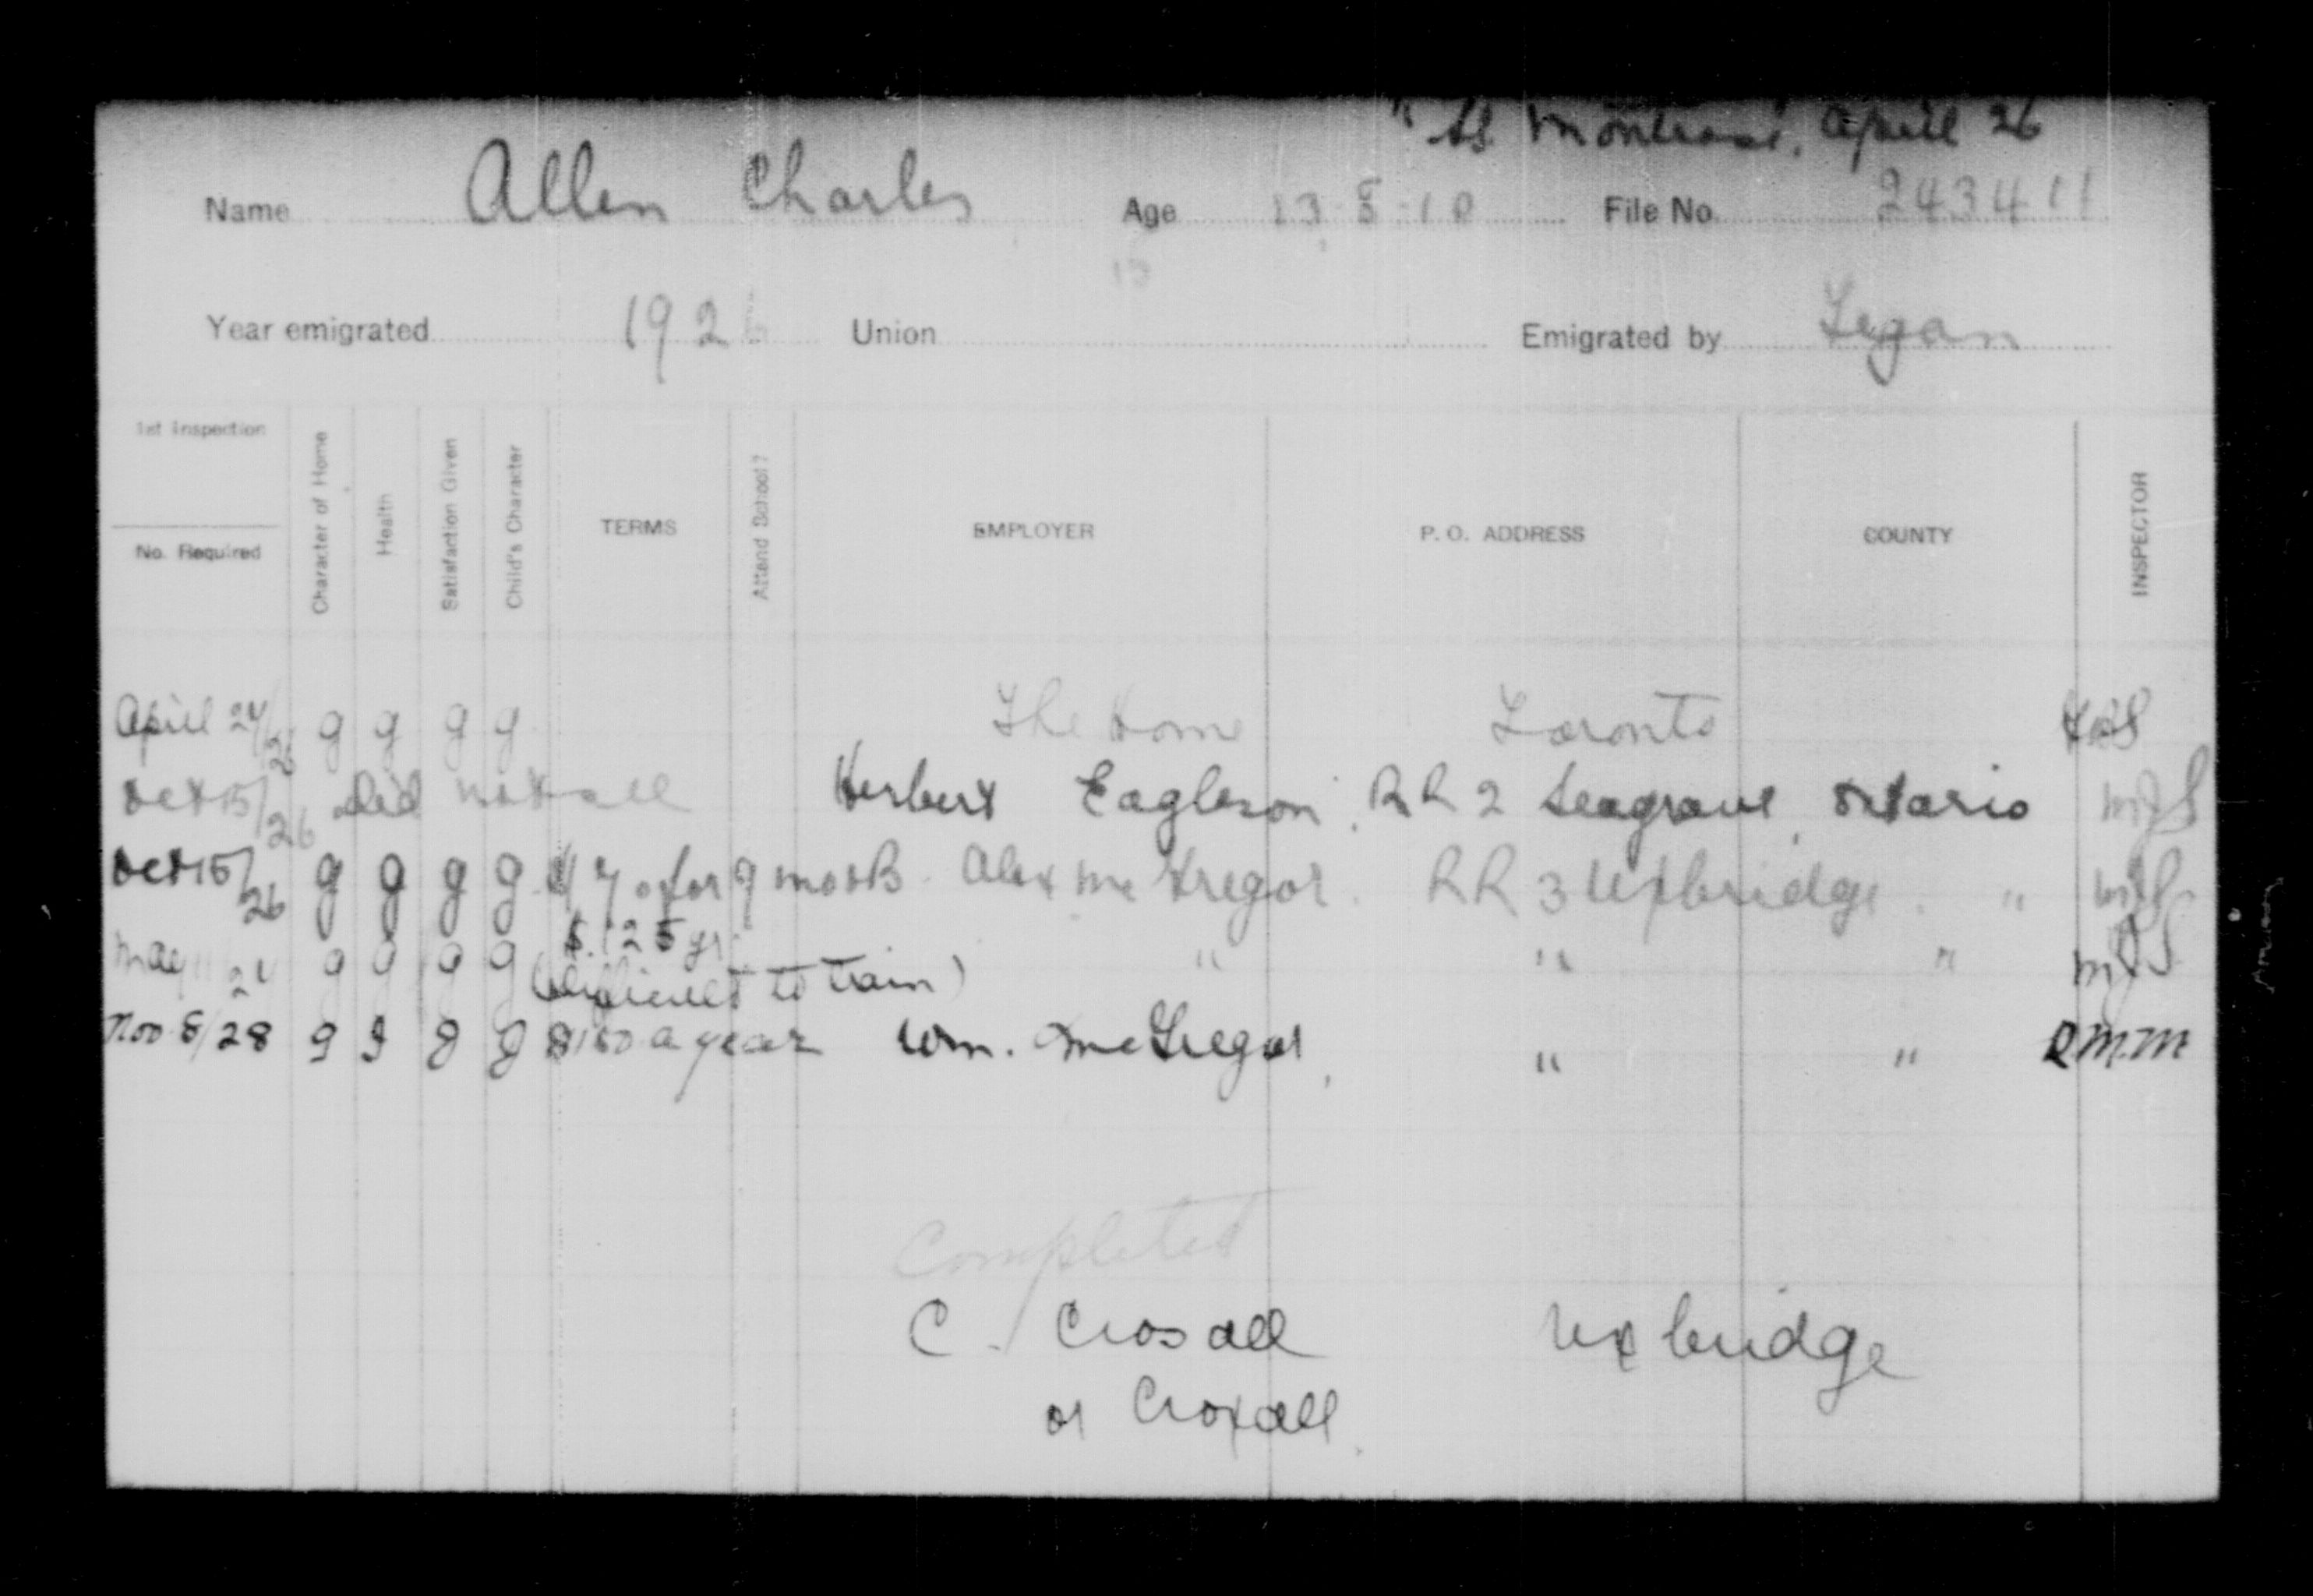 SS Montrose, April 26
Name Allen Charles Age 13-8-10 File No. 243411
13
Year emigrated 1926 Union Emigrated by Fegan
1st Inspection
No. Required Character of Home Health Satisfaction Given Child's Character TERMS Attend School? EMPLOYER P. O. ADDRESS COUNTY INSPECTOR
April 24/26 g g g g The Home Toronto
Oct 15/26 Did not call Herbert Eagleson, RR 2 Seagrave, Ontario MJS
Oct 15/26 g g g g for 9 mos B. Alex McGregor. RR 3 Uxbridge. " MJS
May 11 g g g g $125 yr. " " " MJS
(difficult to train)
Nov 8/28 g g g g $150 a year Wm. McGregor, " " R.M.M
Completed
C. Crosall Uxbridge
or Croxall